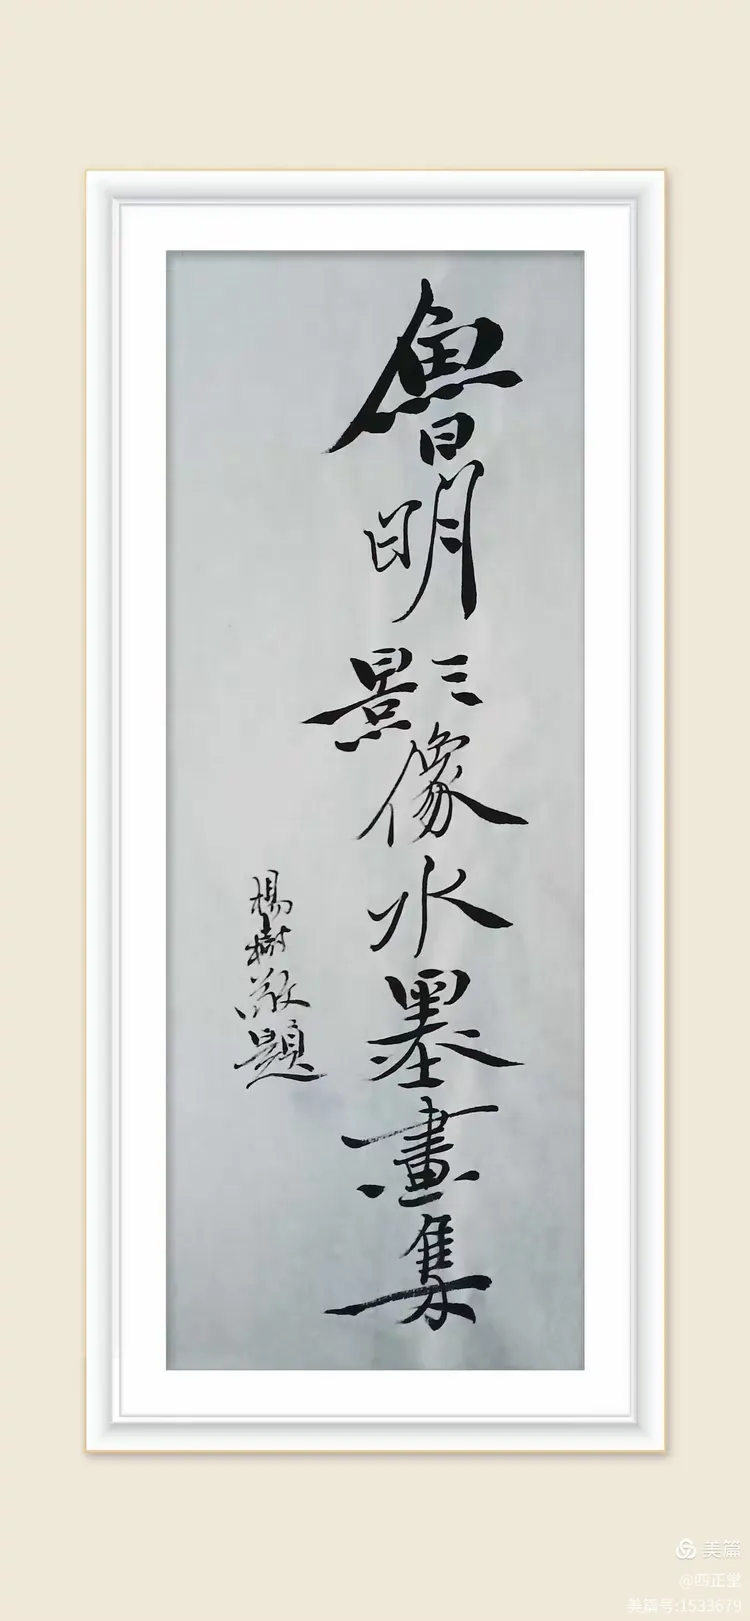 魯明影像水墨畫集
楊樹敬題
美篇
@四正堂
美篇号:1533679